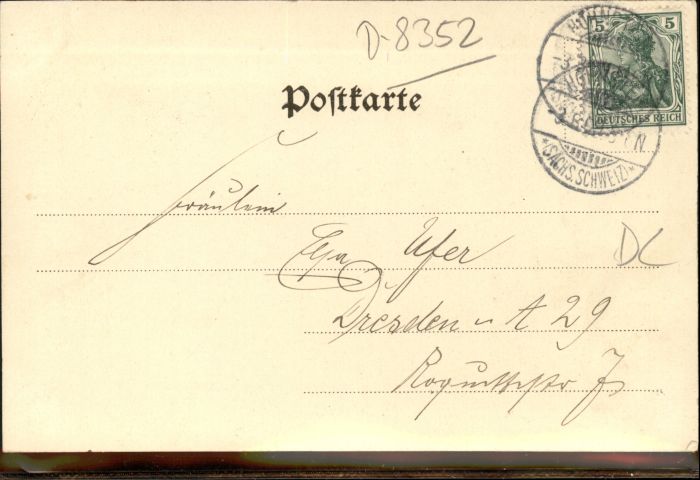 D-8352
5 5
DEUTSCHES REICH
Postkarte
*(SÄCHS. SCHWEIZ)*
Fräulein
Ufer
DL
Dresden - A 29